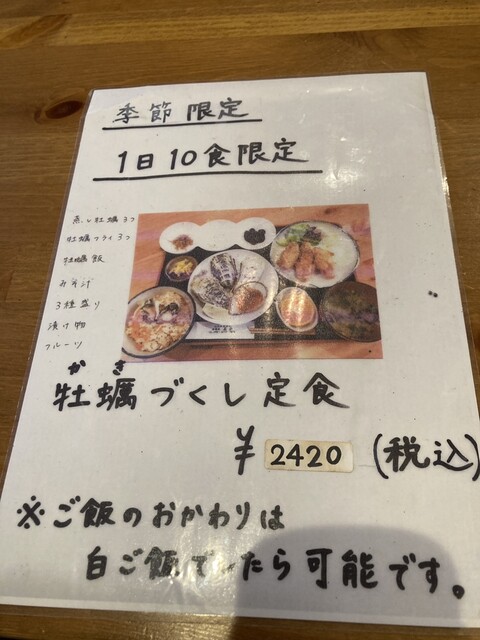 季節限定
1日10食限定
蒸し牡蠣3つ
牡蠣フライ3つ
牡蠣飯
みそ汁
3種盛り
漬け物
フルーツ
かき
牡蠣づくし定食
¥2420(税込)
※ご飯のおかわりは
白ご飯でしたら可能です。